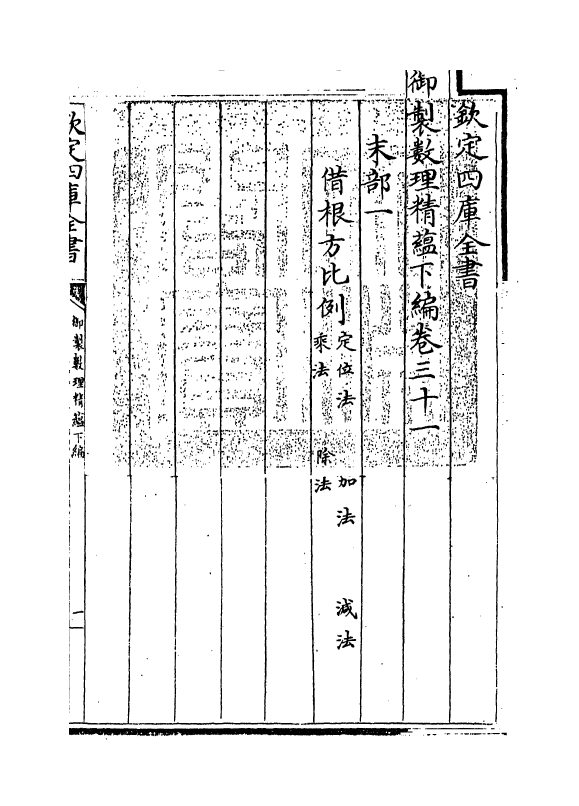 欽定四庫全書
御製數理精蘊下編卷三十一
末部一
借根方比例 定位法 加法 減法
乘法 除法
欽定四庫全書
御製數理精蘊下編
一